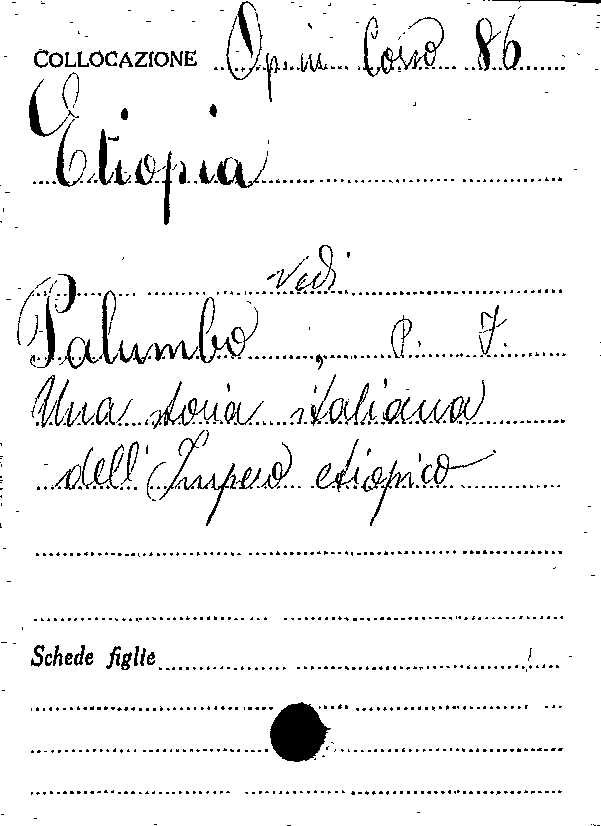 COLLOCAZIONE Op. in Corso 86
Etiopia
Vedi
Palumbo, P. F.
Una storia italiana
dell'Impero etiopico
Schede figlie